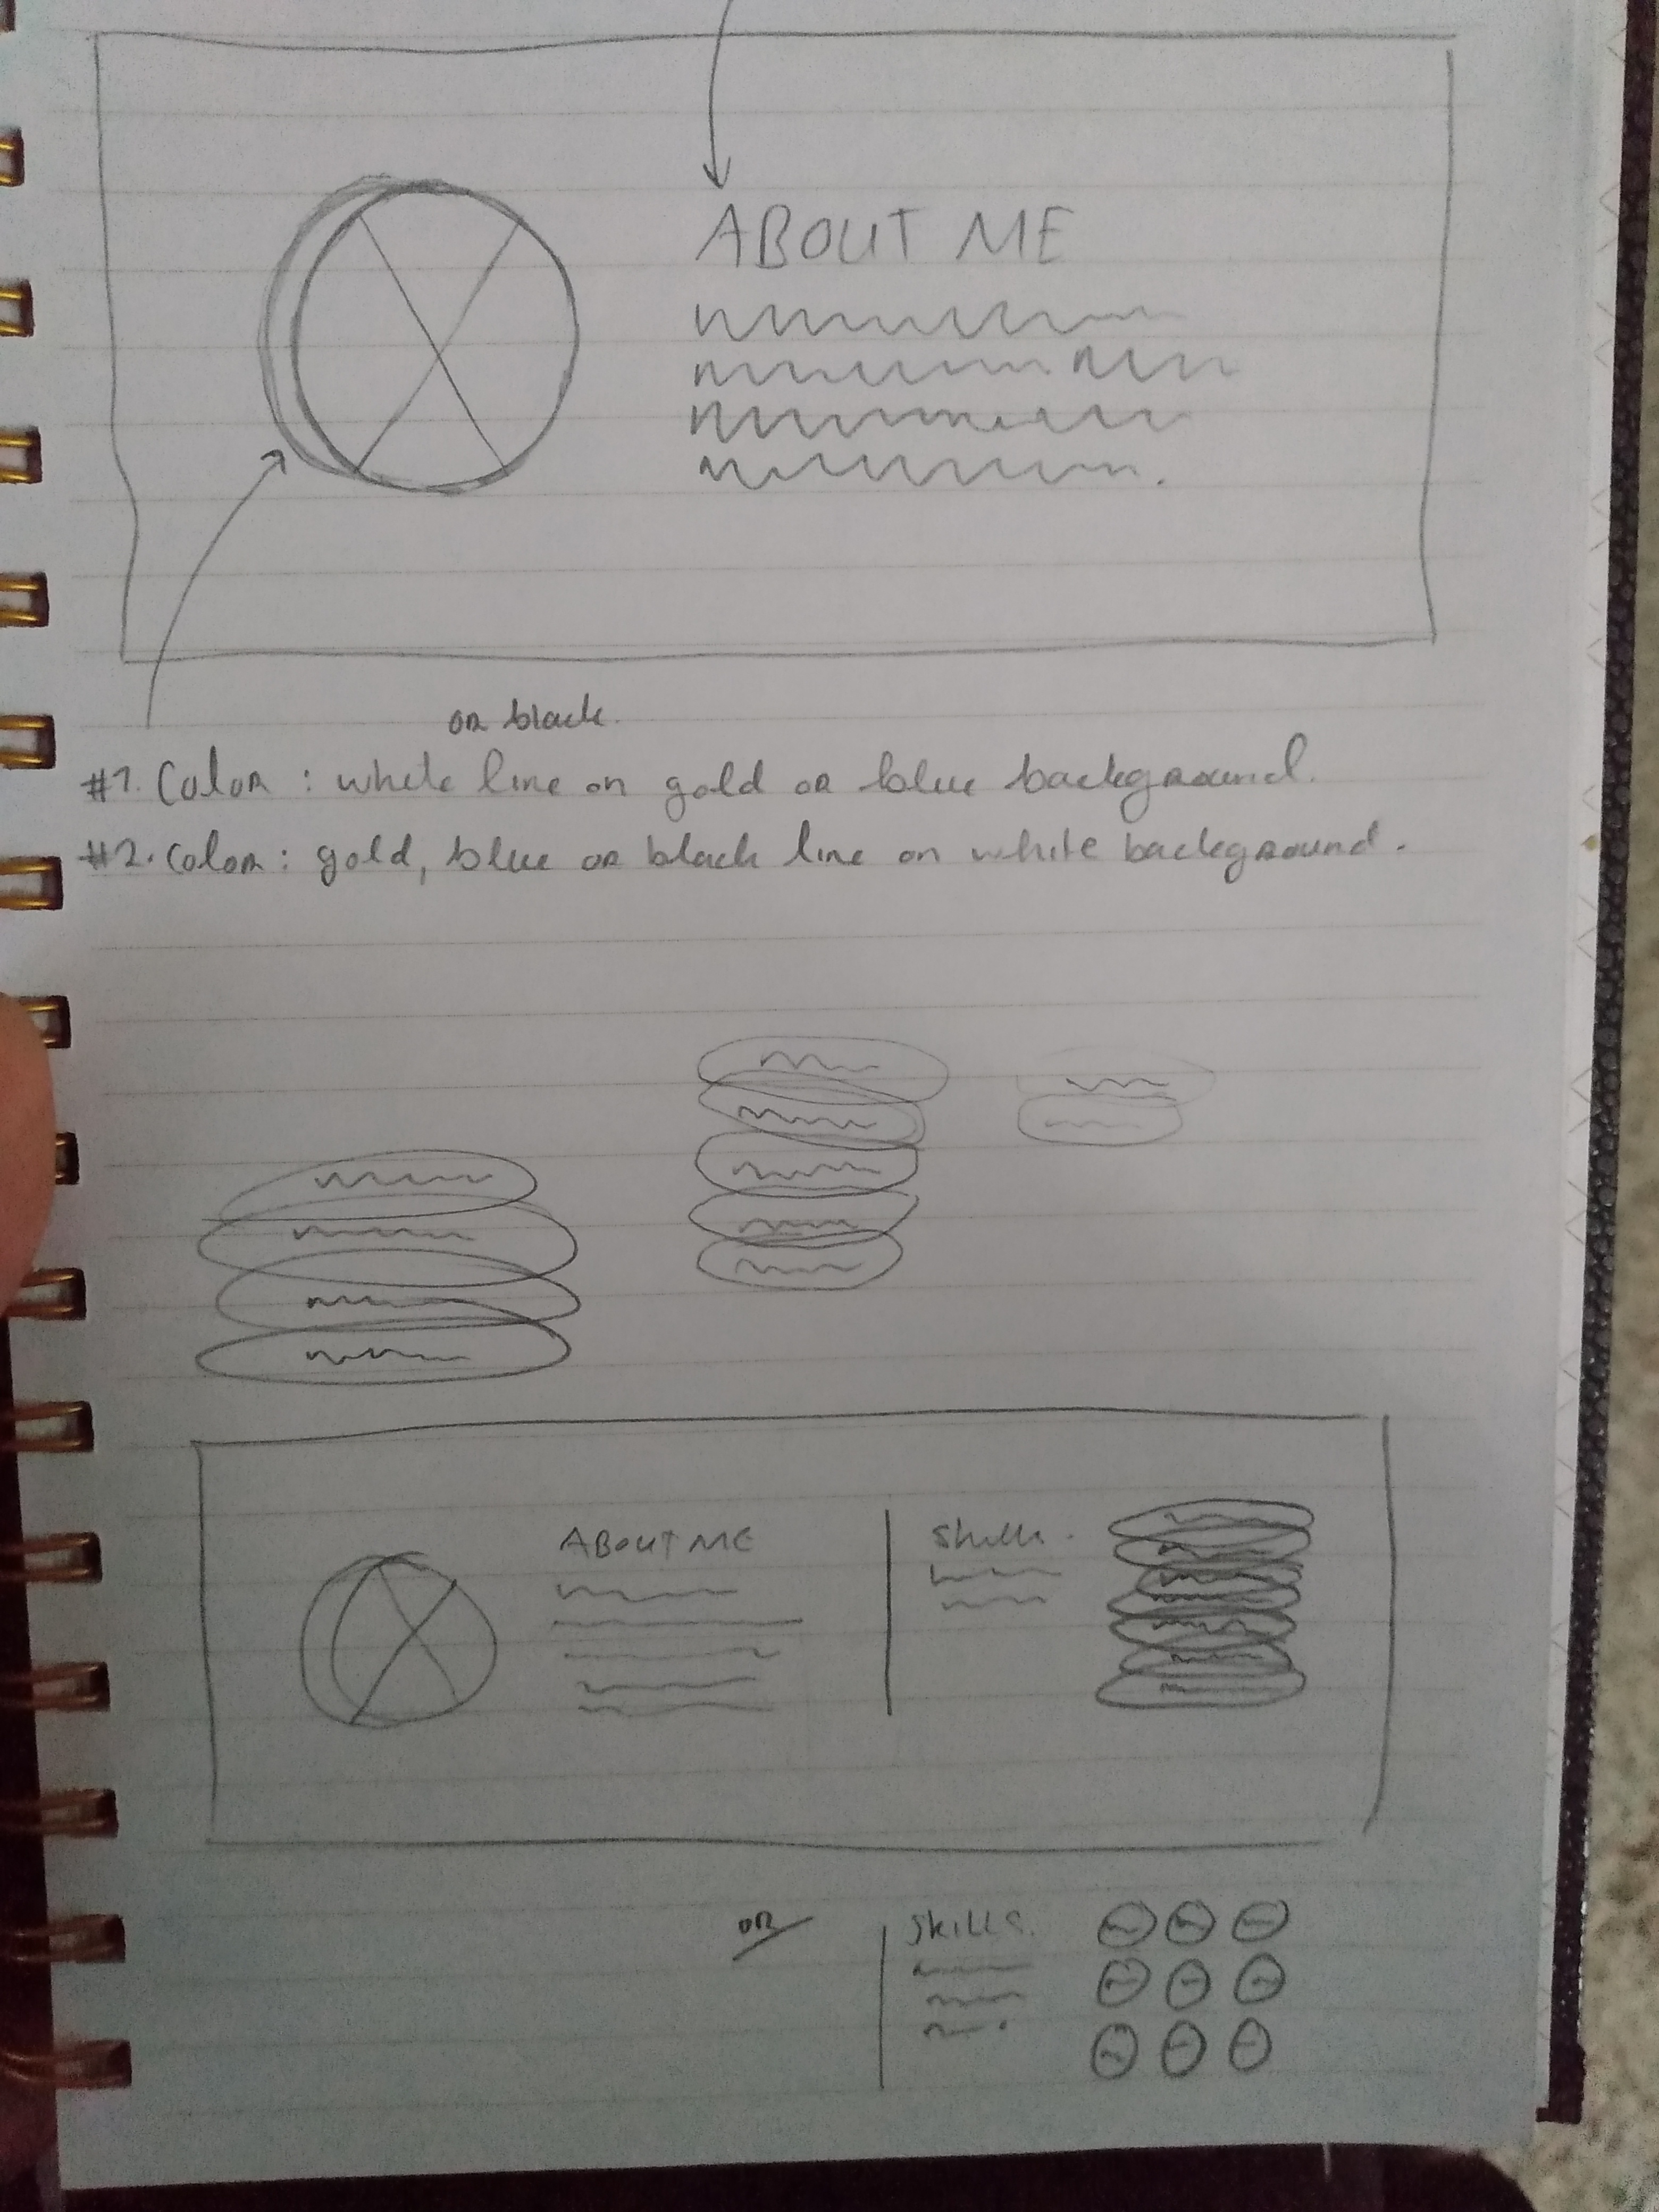 ABOUT ME
or black.
#1. Color : white line on gold or blue background.
#2. Color : gold, blue or black line on white background.
ABOUT ME
Skills.
or
Skills.